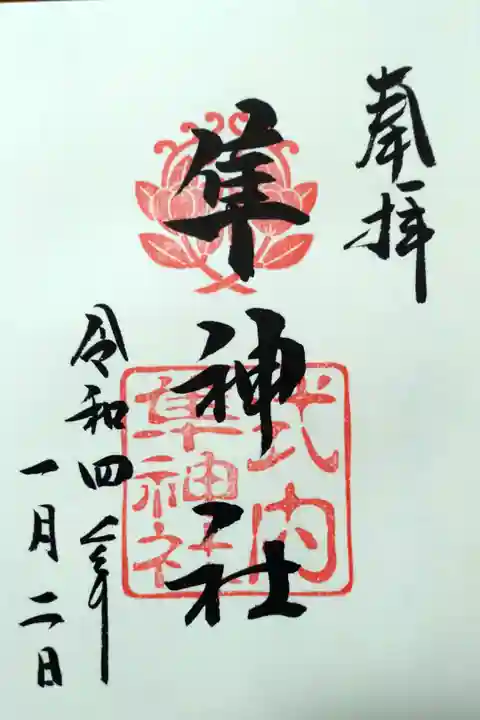 奉拝
隼神社
式内
隼神社
令和四年
一月二日